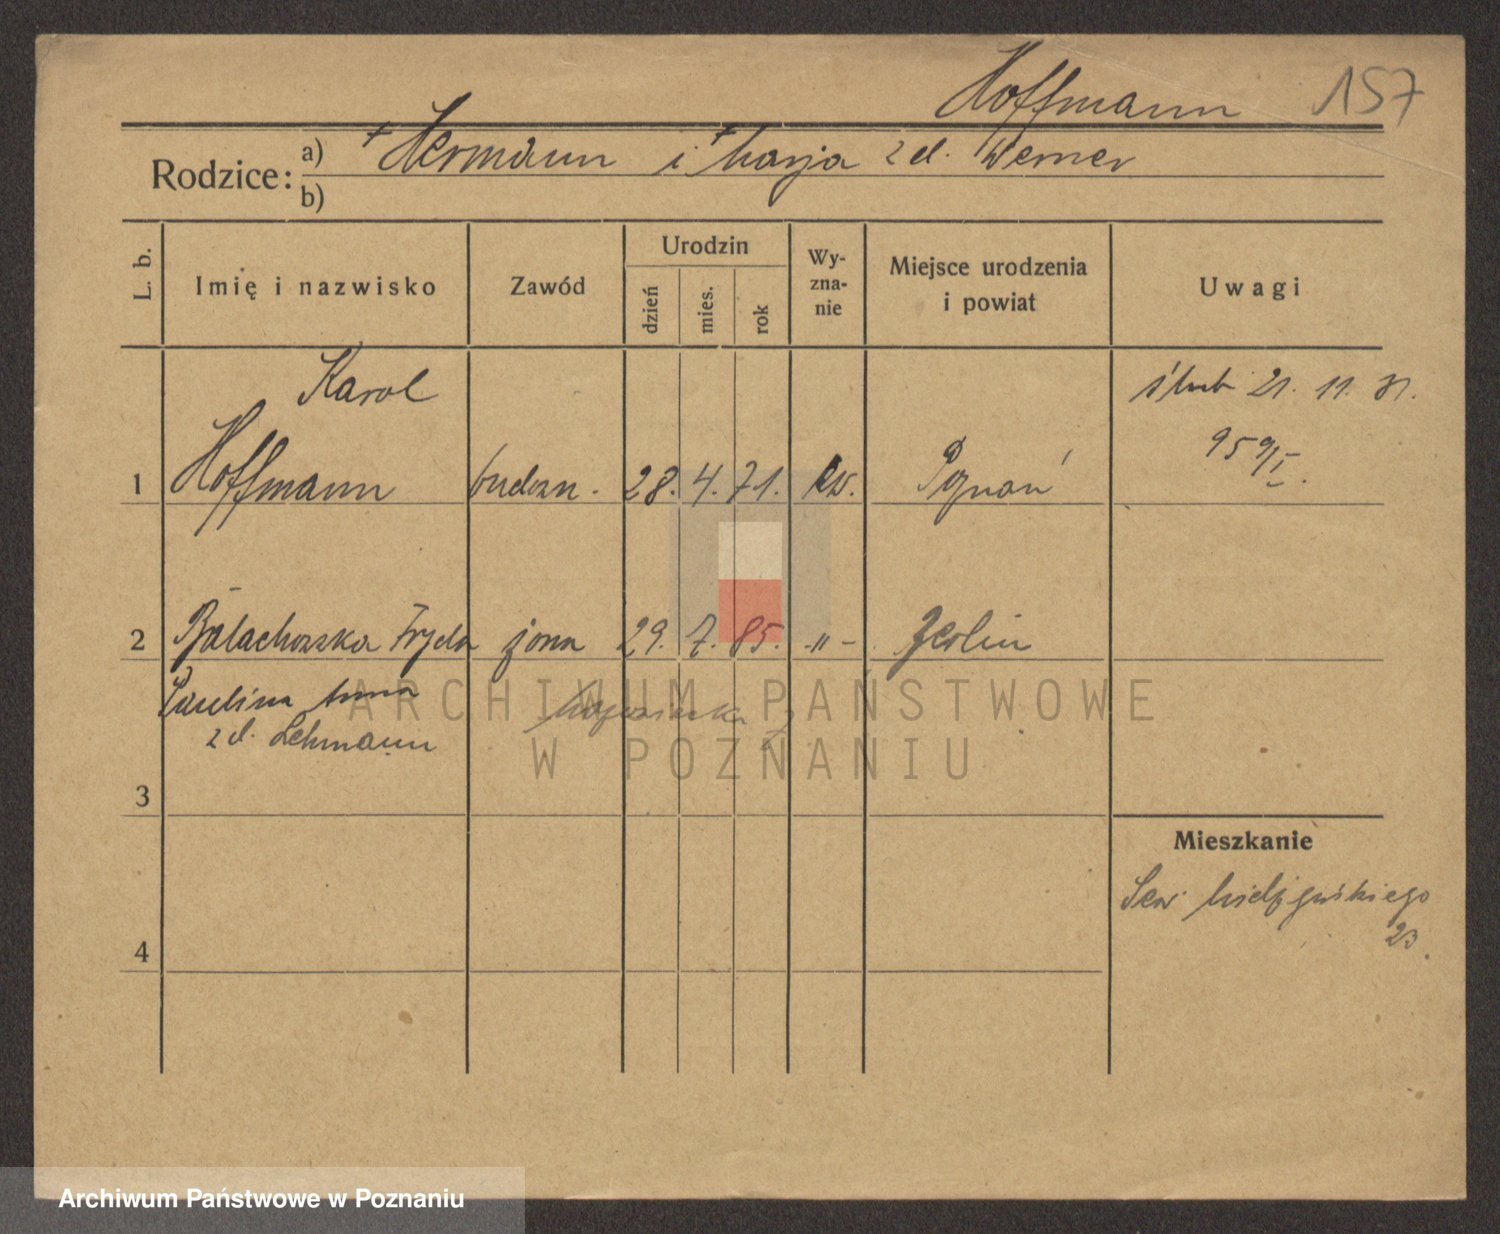 Hoffmann 157
Rodzice: a) + Hermann i + Marja z d. Werner
b)
L. b. Imię i nazwisko Zawód Urodzin dzień mies. rok Wy-zna-nie Miejsce urodzenia i powiat Uwagi
Karol ślub 21. 11. 31.
959/I.
1 Hoffmann budown. 28. 4. 71. ew. Poznań
2 Balachowska Fryda żona 29. 7. 85. -"- Berlin
Paulina Anna
z d. Lehmann
3
Mieszkanie
Sew. Mielżyńskiego
23.
4
ARCHIWUM PAŃSTWOWE
W POZNANIU
Archiwum Państwowe w Poznaniu